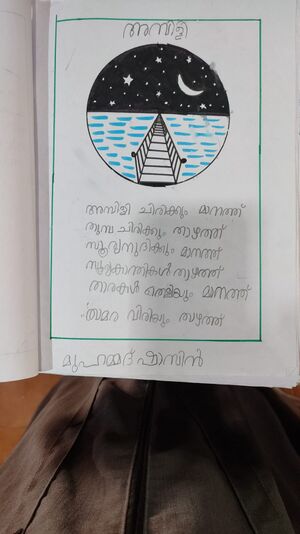 അമ്പിളി
അമ്പിളി ചിരിക്കും മാനത്ത്
തുമ്പ ചിരിക്കും താഴത്ത്
സൂര്യനുദിക്കും മാനത്ത്
സൂര്യകാന്തികൾ താഴത്ത്
താരകൾ തെളിയും മാനത്ത്
താമര വിരിയും താഴത്ത്
മുഹമ്മദ് ഷാസിൻ